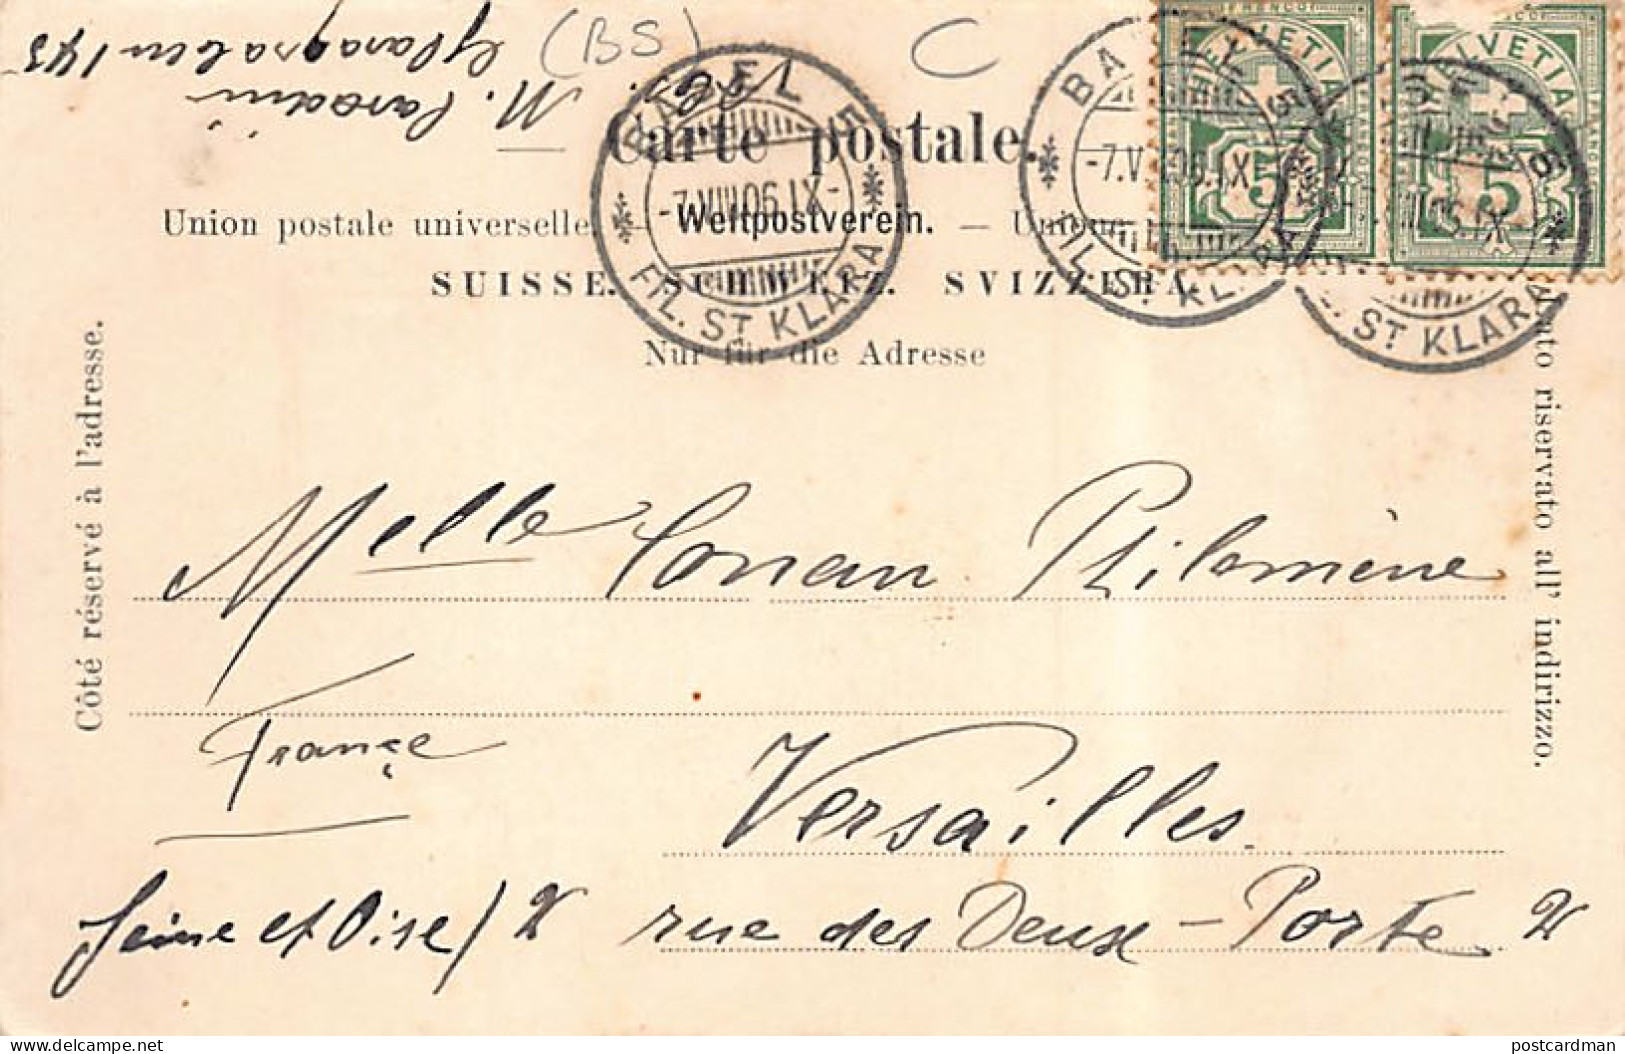 M. Paradin
Claragraben 143
(BS)
C
Carte postale.
Union postale universelle. — Weltpostverein. — Unione
SUISSE. SCHWEIZ. SVIZZERA.
Nur für die Adresse
Côté réservé à l'adresse.
riservato all' indirizzo.
BASEL
-7.VIII.06.IX-
FIL. ST. KLARA
BASEL
-7.V 06.IX
FIL. ST. KLARA
06.IX
ST. KLARA
FRANCO
HELVETIA
5
HELVETIA
5
Melle Conan Philomène
France
Versailles.
Seine et Oise / 2 rue des Deux-Porte 2
postcardman